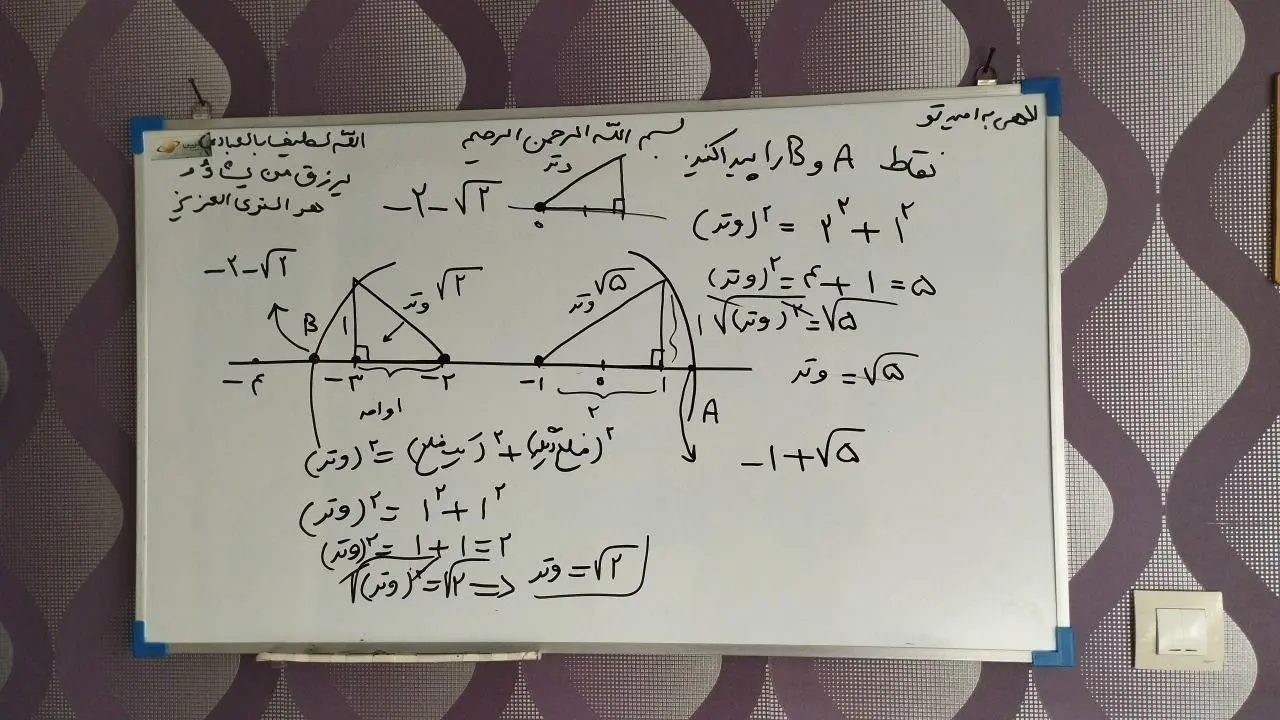 الهی به امید تو
بسم الله الرحمن الرحیم
الله لطیف بالعباد
یرزق من یشاء و
هو القوی العزیز
نقاط A و B را پیدا کنید.
وتر
۰
−۲−√۲
(وتر)² = ۲² + ۱²
(وتر)² = ۴ + ۱ = ۵
√(وتر)² = √۵
وتر = √۵
−۱+√۵
−۲−√۲
B
۱
وتر √۲
وتر √۵
۱
−۴ −۳ −۲ −۱ ۰ ۱
A
۱ واحد
۲
(وتر)² = (یک ضلع)² + (ضلع دیگر)²
(وتر)² = ۱² + ۱²
(وتر)² = ۱ + ۱ = ۲
√(وتر)² = √۲ => وتر = √۲